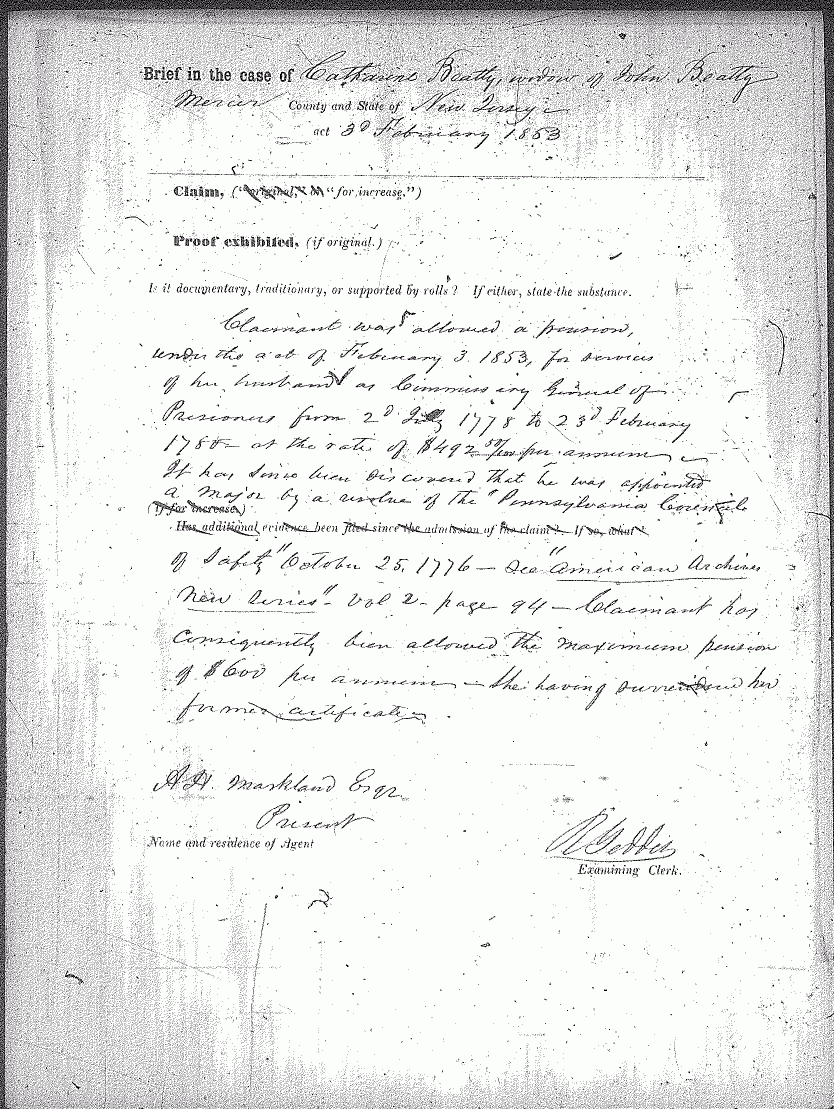 Brief in the case of Catharine Beatty, widow of John Beatty
Mercer County and State of New Jersey
act 3d February 1853
Claim, ("original," or "for increase,")
Proof exhibited, (if original.)
Is it documentary, traditionary, or supported by rolls? If either, state the substance.
Claimant was allowed a pension,
under the act of February 3 1853, for services
of her husband as Commissary General of
Prisoners from 2d July 1778 to 23d February
at the rate of $492 50/100 per annum
It has since been discovered that he was appointed
a Major by a resolve of the "Pennsylvania Council
(If for increase.)
Has additional evidence been filed since the admission of the claim? If so, what?
of Safety" October 25, 1776 — See "American Archives
New Series" Vol 2 - page 94 — Claimant has
consequently been allowed the maximum pension
of $600 per annum — she having surrendered her
former certificate.
A H. Markland Esqr
Present
Name and residence of Agent
R Geddes
Examining Clerk.